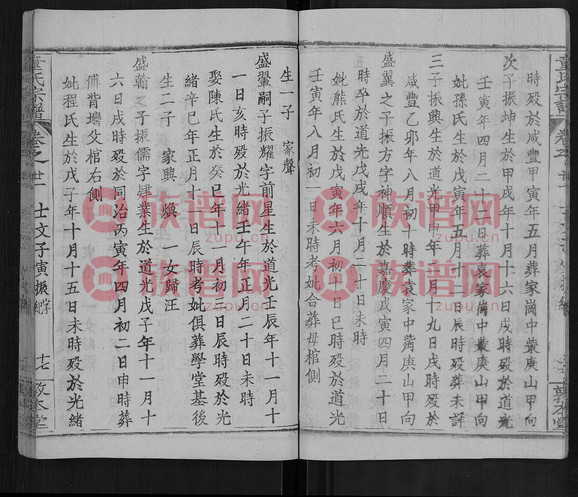 時殁於咸豐甲寅年五月葬家崗中叢庚山甲向
次子振坤生於甲戌年十月十六日戌時殁於道光
壬寅年四月二十二日葬袁家崗中叢庚山甲向
妣孫氏生於戊寅年五月十二日辰時殁葬未詳
三子振興生於道光甲申年八月十九日戌時殁於
咸豐乙卯年八月初十時葬袁家中崗庚山甲向
盛翼之子振方字神順生於嘉慶戊寅四月二十日
時卒於道光年十二日未時
妣熊氏生於戊寅年六月初十日巳時殁於道光
壬寅年八月初一日未時考妣合葬母棺側
生一子 家聲
盛翬嗣子振耀字前星生於道光壬辰年十一月十
一日亥時殁於光緒壬午年正月二十日未時
娶陳氏生於癸巳年十月初三日辰時殁於光
緒辛巳年正月十一日辰時考妣俱葬學堂基後
生二子 家興 煥 一女歸汪
盛翰之子振儒字肄業生於道光戊子年十一月十
六日戌時殁於同治丙寅年四月初二日申時葬
傅背塆父棺右側
妣程氏生於戊子年十月十五日未時殁於光緒
童氏宗譜 卷之廿 士文子寅振 十七 敦本堂
族谱网
zupu.cn
族谱网
zupu.cn
族谱网
zupu.cn
族谱网
zupu.cn